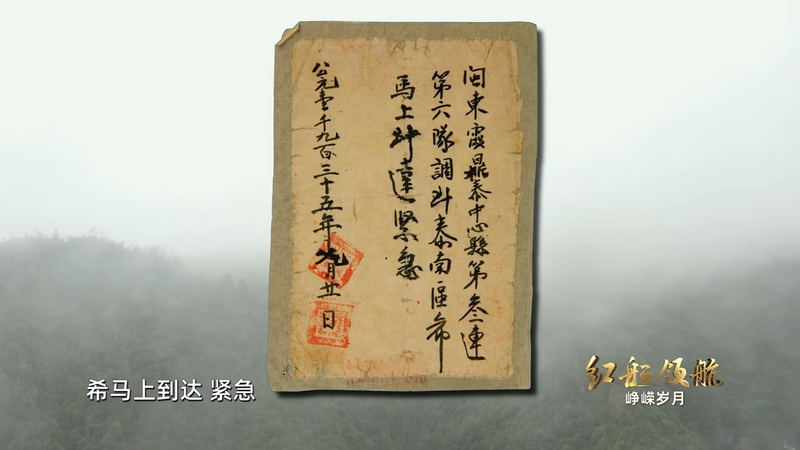 闽東霞鼎泰中心縣第叁連
第六隊調斗泰南區希
馬上斗達緊急
公元壹千九百三十五年九月廿一日
希马上到达 紧急
红船领航
峥嵘岁月